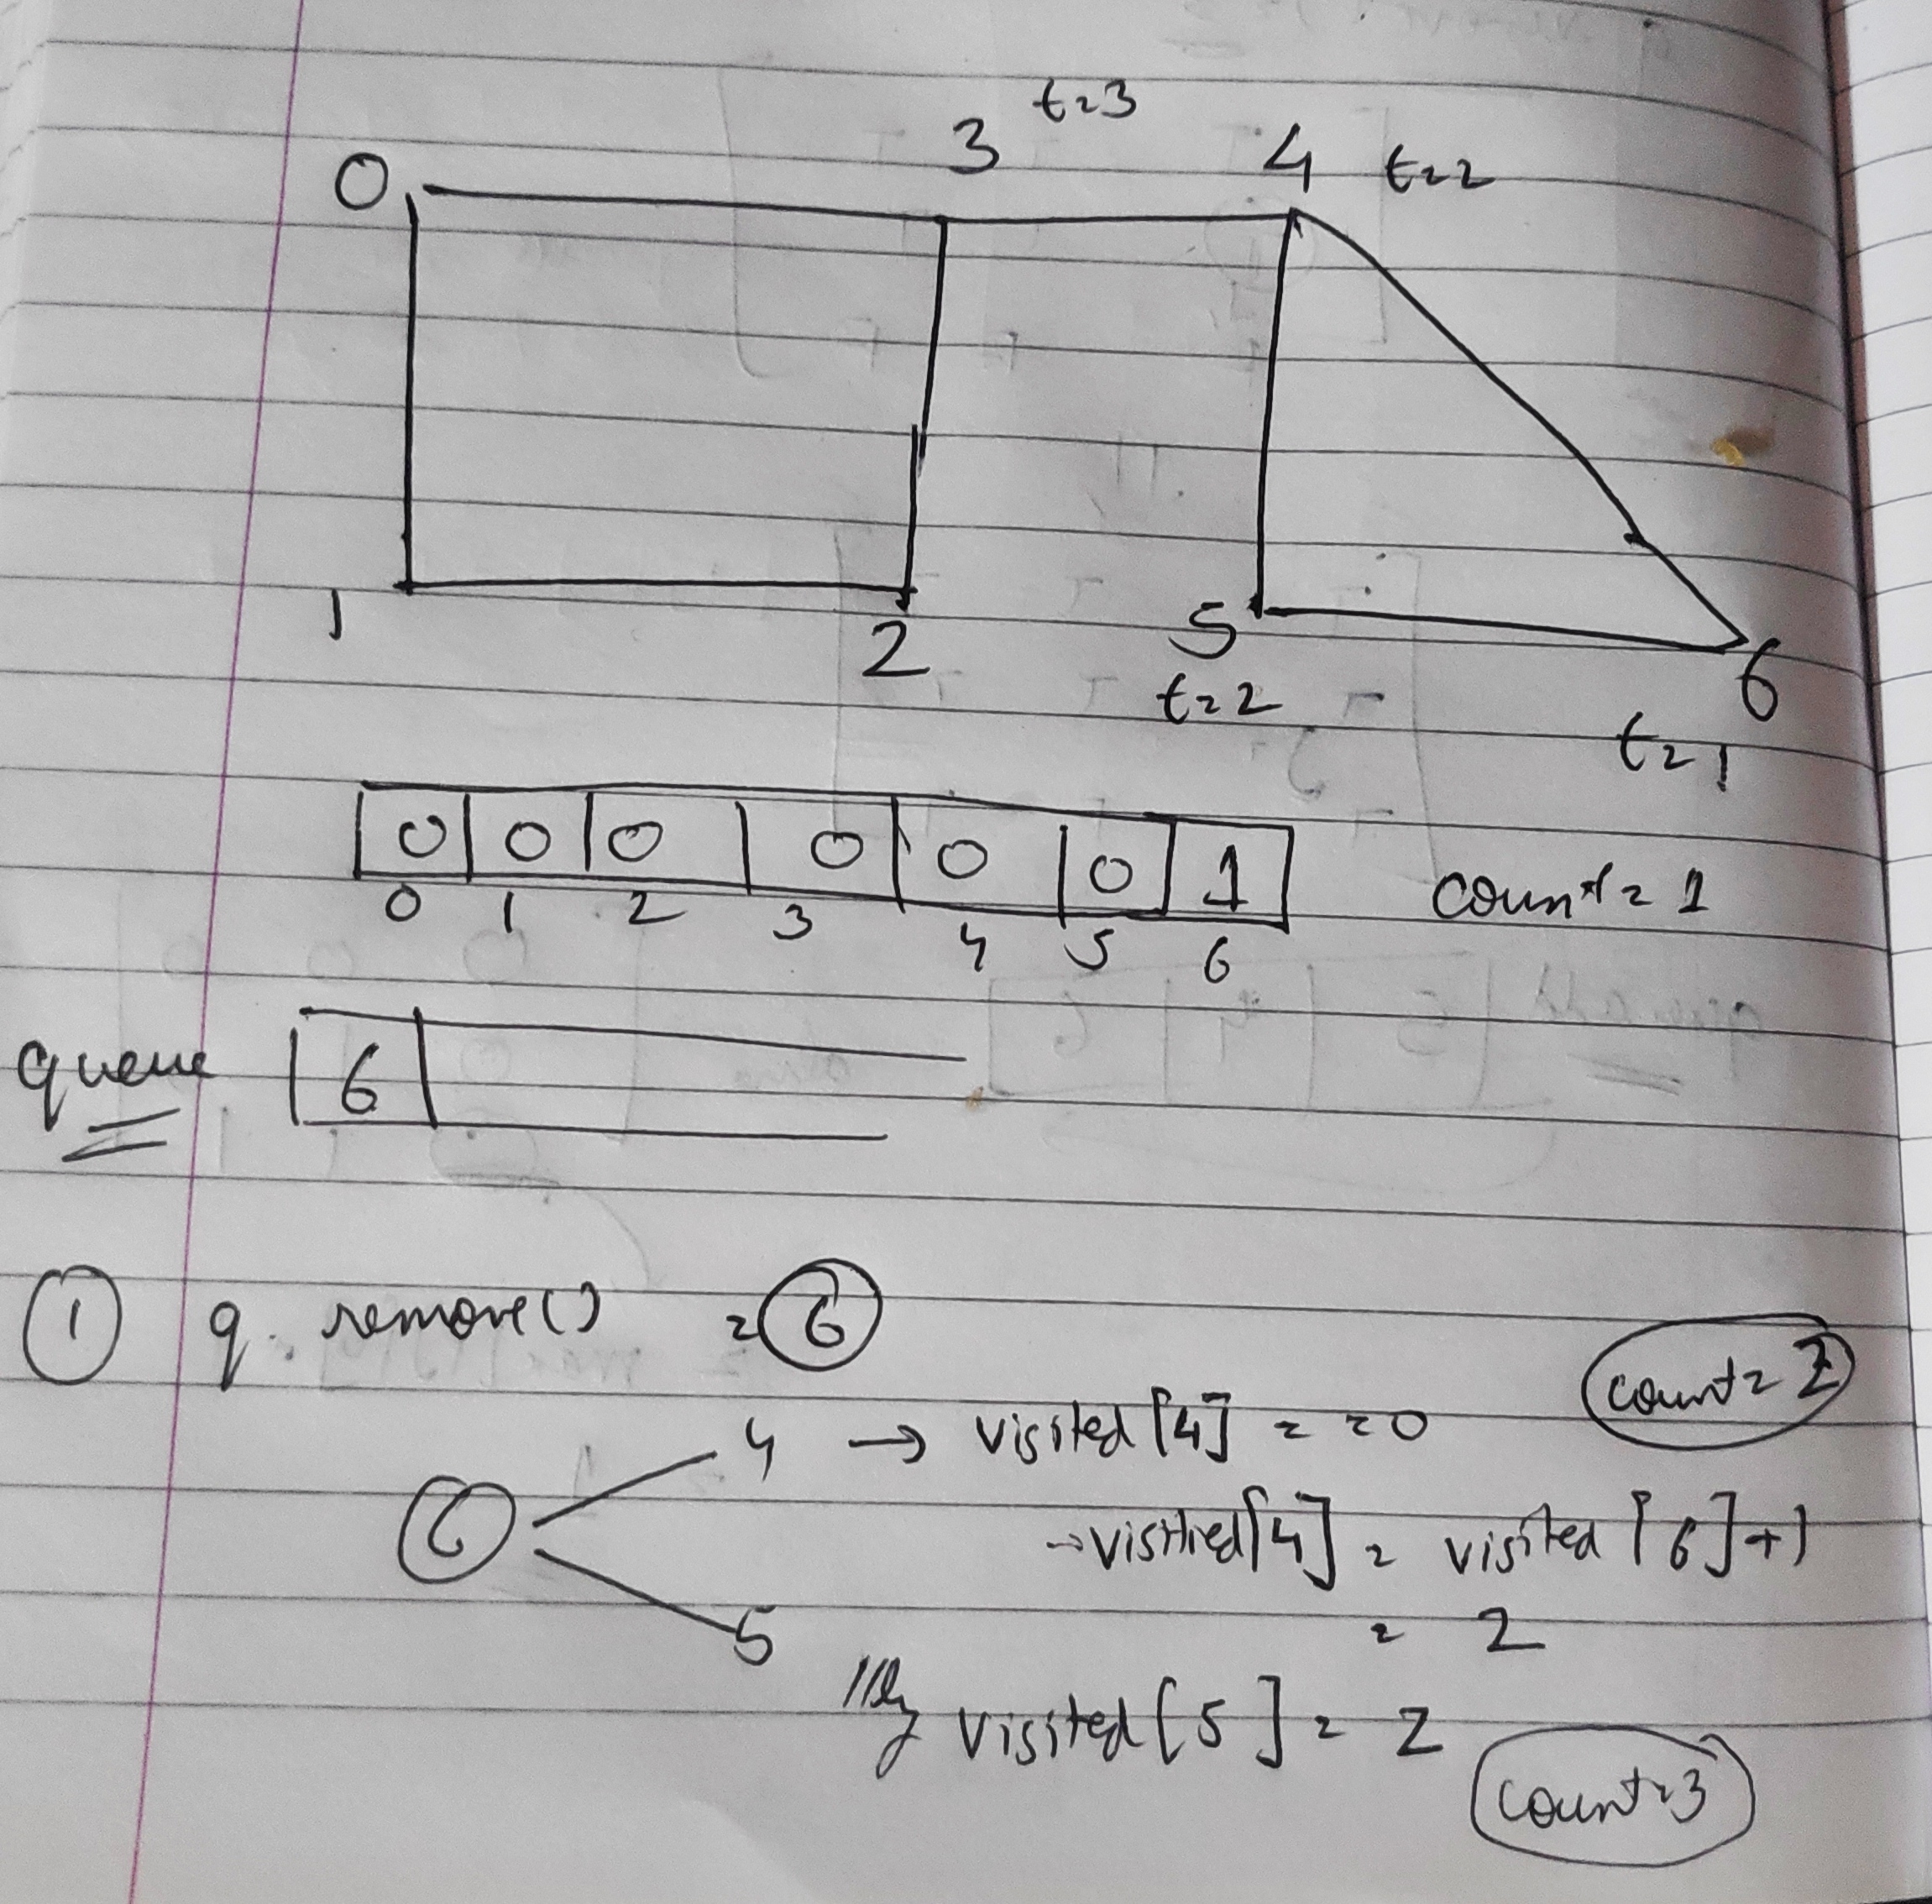 t=3
0 3 4 t=2
1 2 5 6
t=2
t=1
0 0 0 0 0 0 1
count = 1
0 1 2 3 4 5 6
queue 6
1 q. remove() = 6
count = 2
4 → visited [4] = = 0
6
→ visitied[4] = visited [6]+1
= 2
5
|||ly visited [5] = 2
count = 3